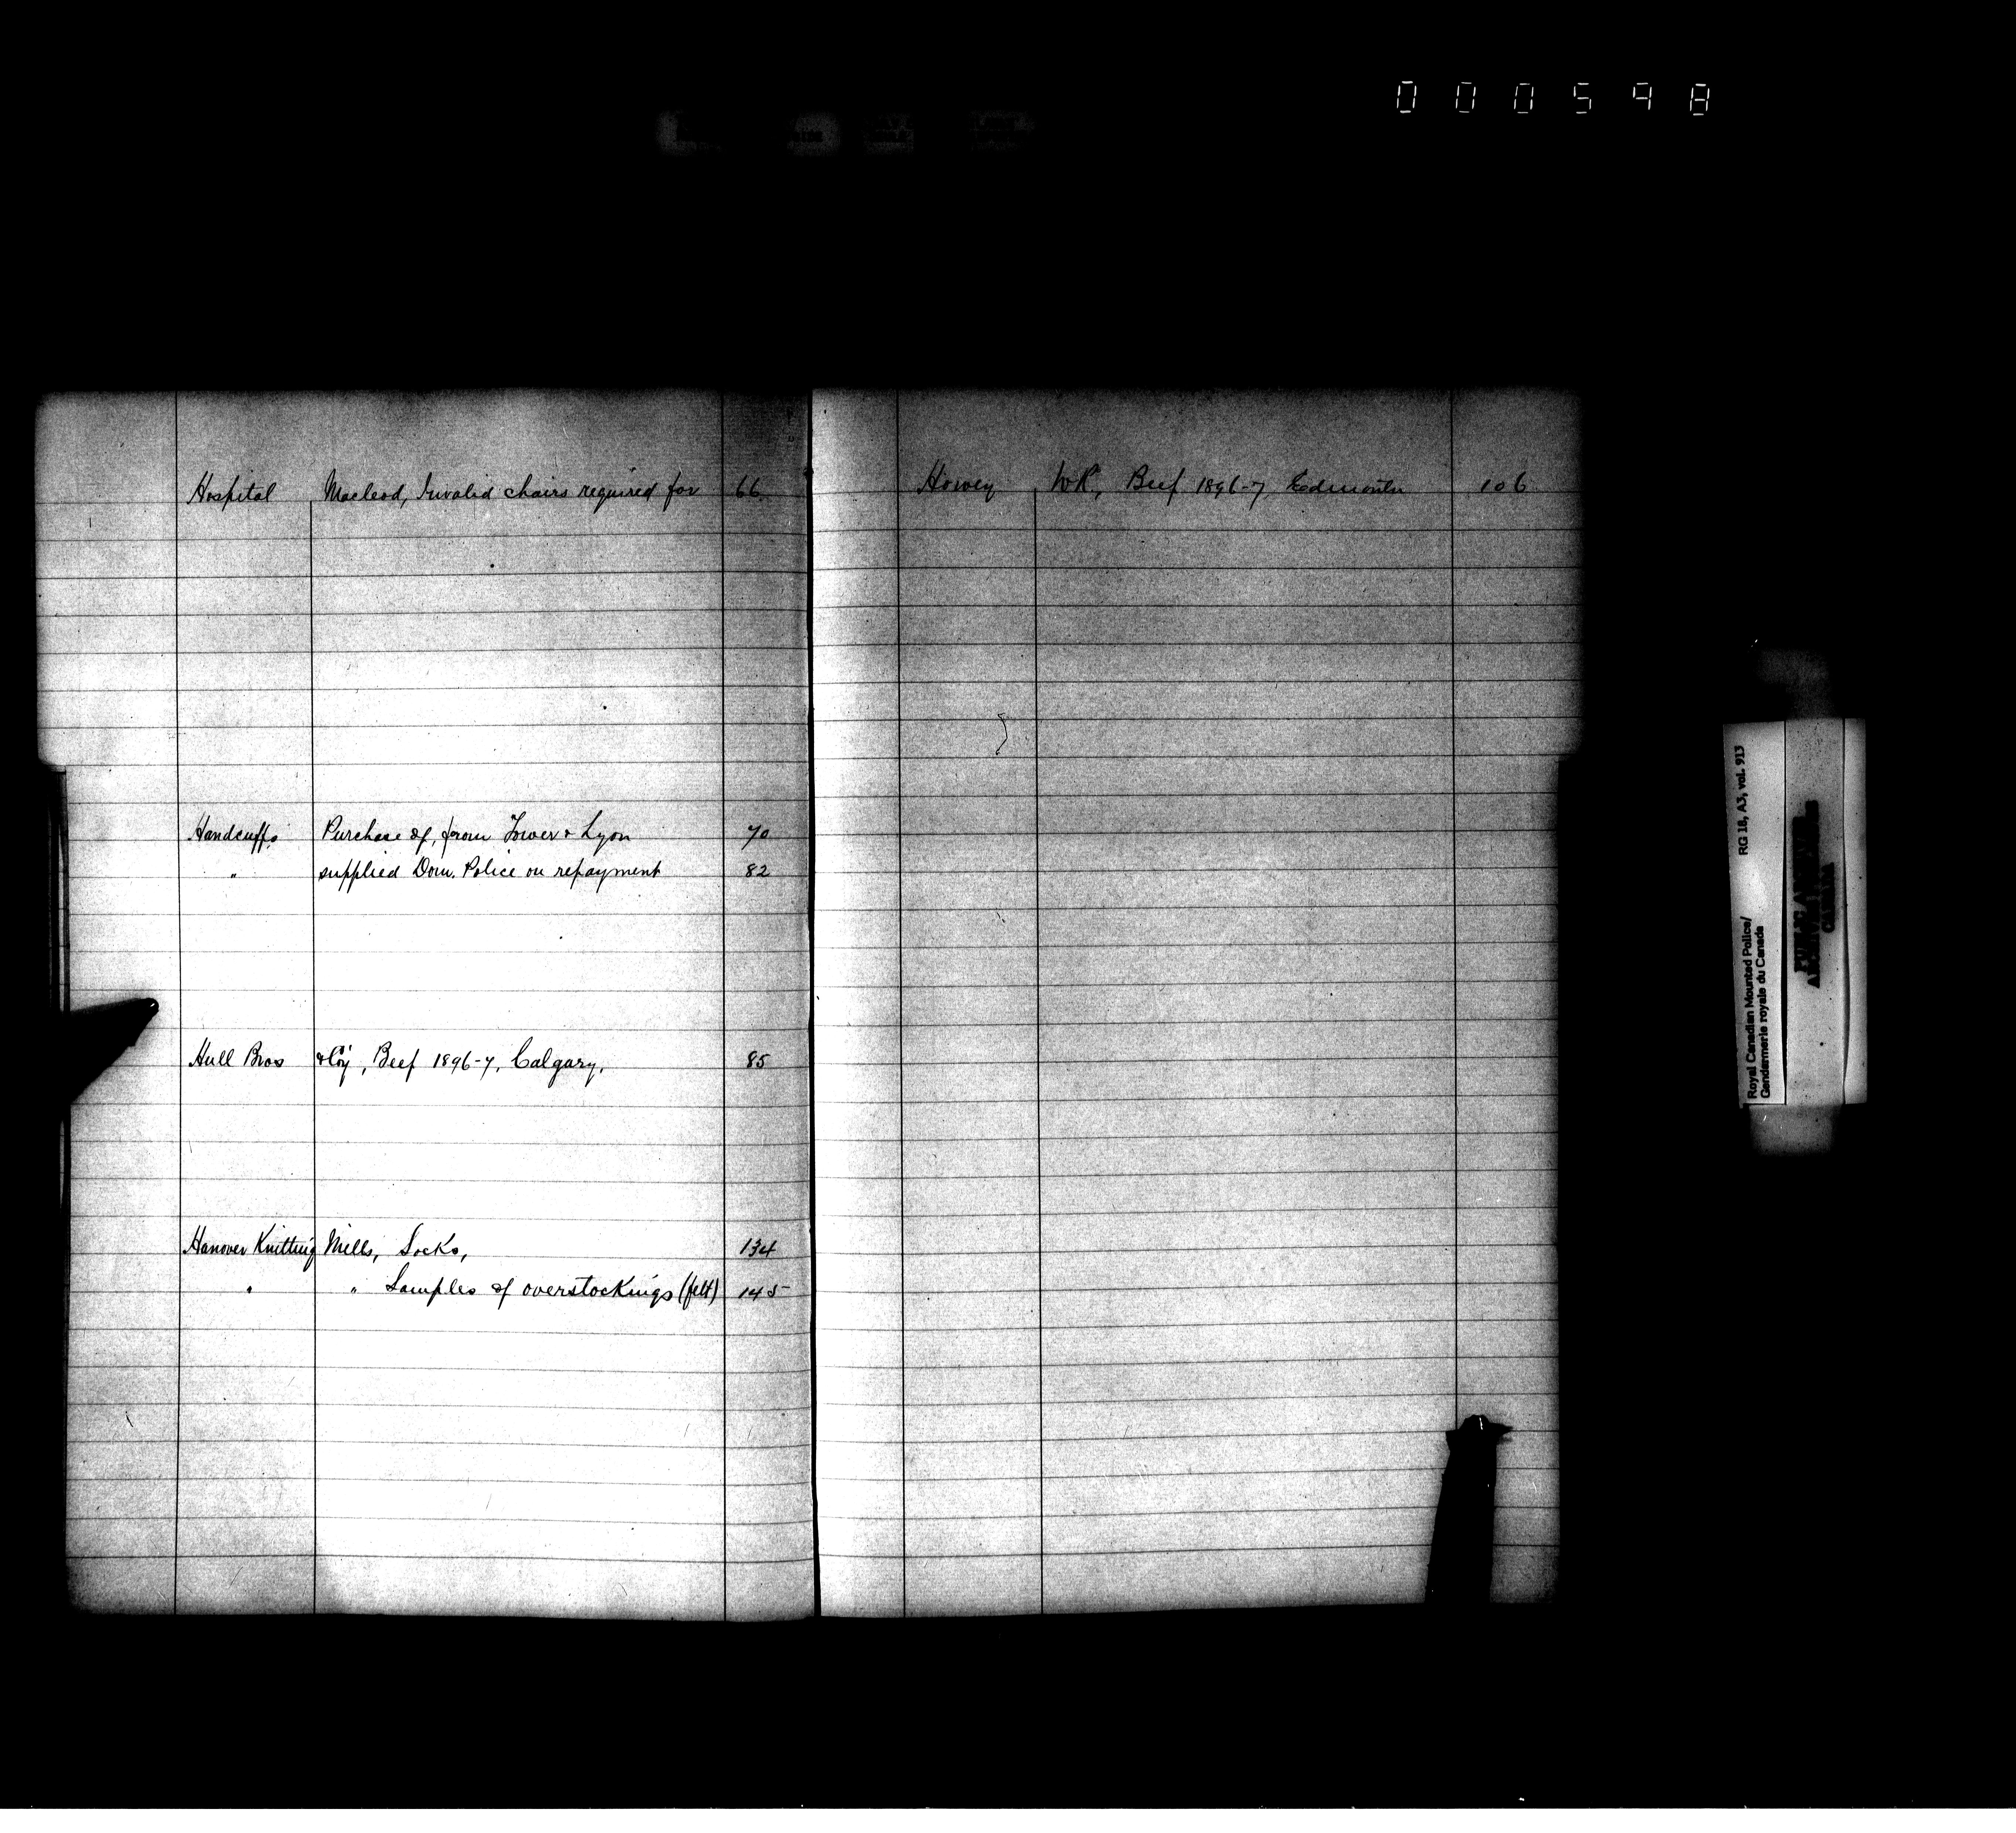 000598
Hospital Macleod, Invalid chairs required for 66
Handcuffs Purchase of, from Tower & Lyon 70
" supplied Dom. Police on repayment 82
Hull Bros & Coy, Beef 1896-7, Calgary, 85
Hanover Knitting Mills, Socks, 134
" " Samples of overstockings (felt) 145
Howey W.R, Beef 1896-7, Edmonton 106
Royal Canadian Mounted Police/
Gendarmerie royale du Canada
RG 18, A3, vol. 913
PUBLIC ARCHIVES
CANADA